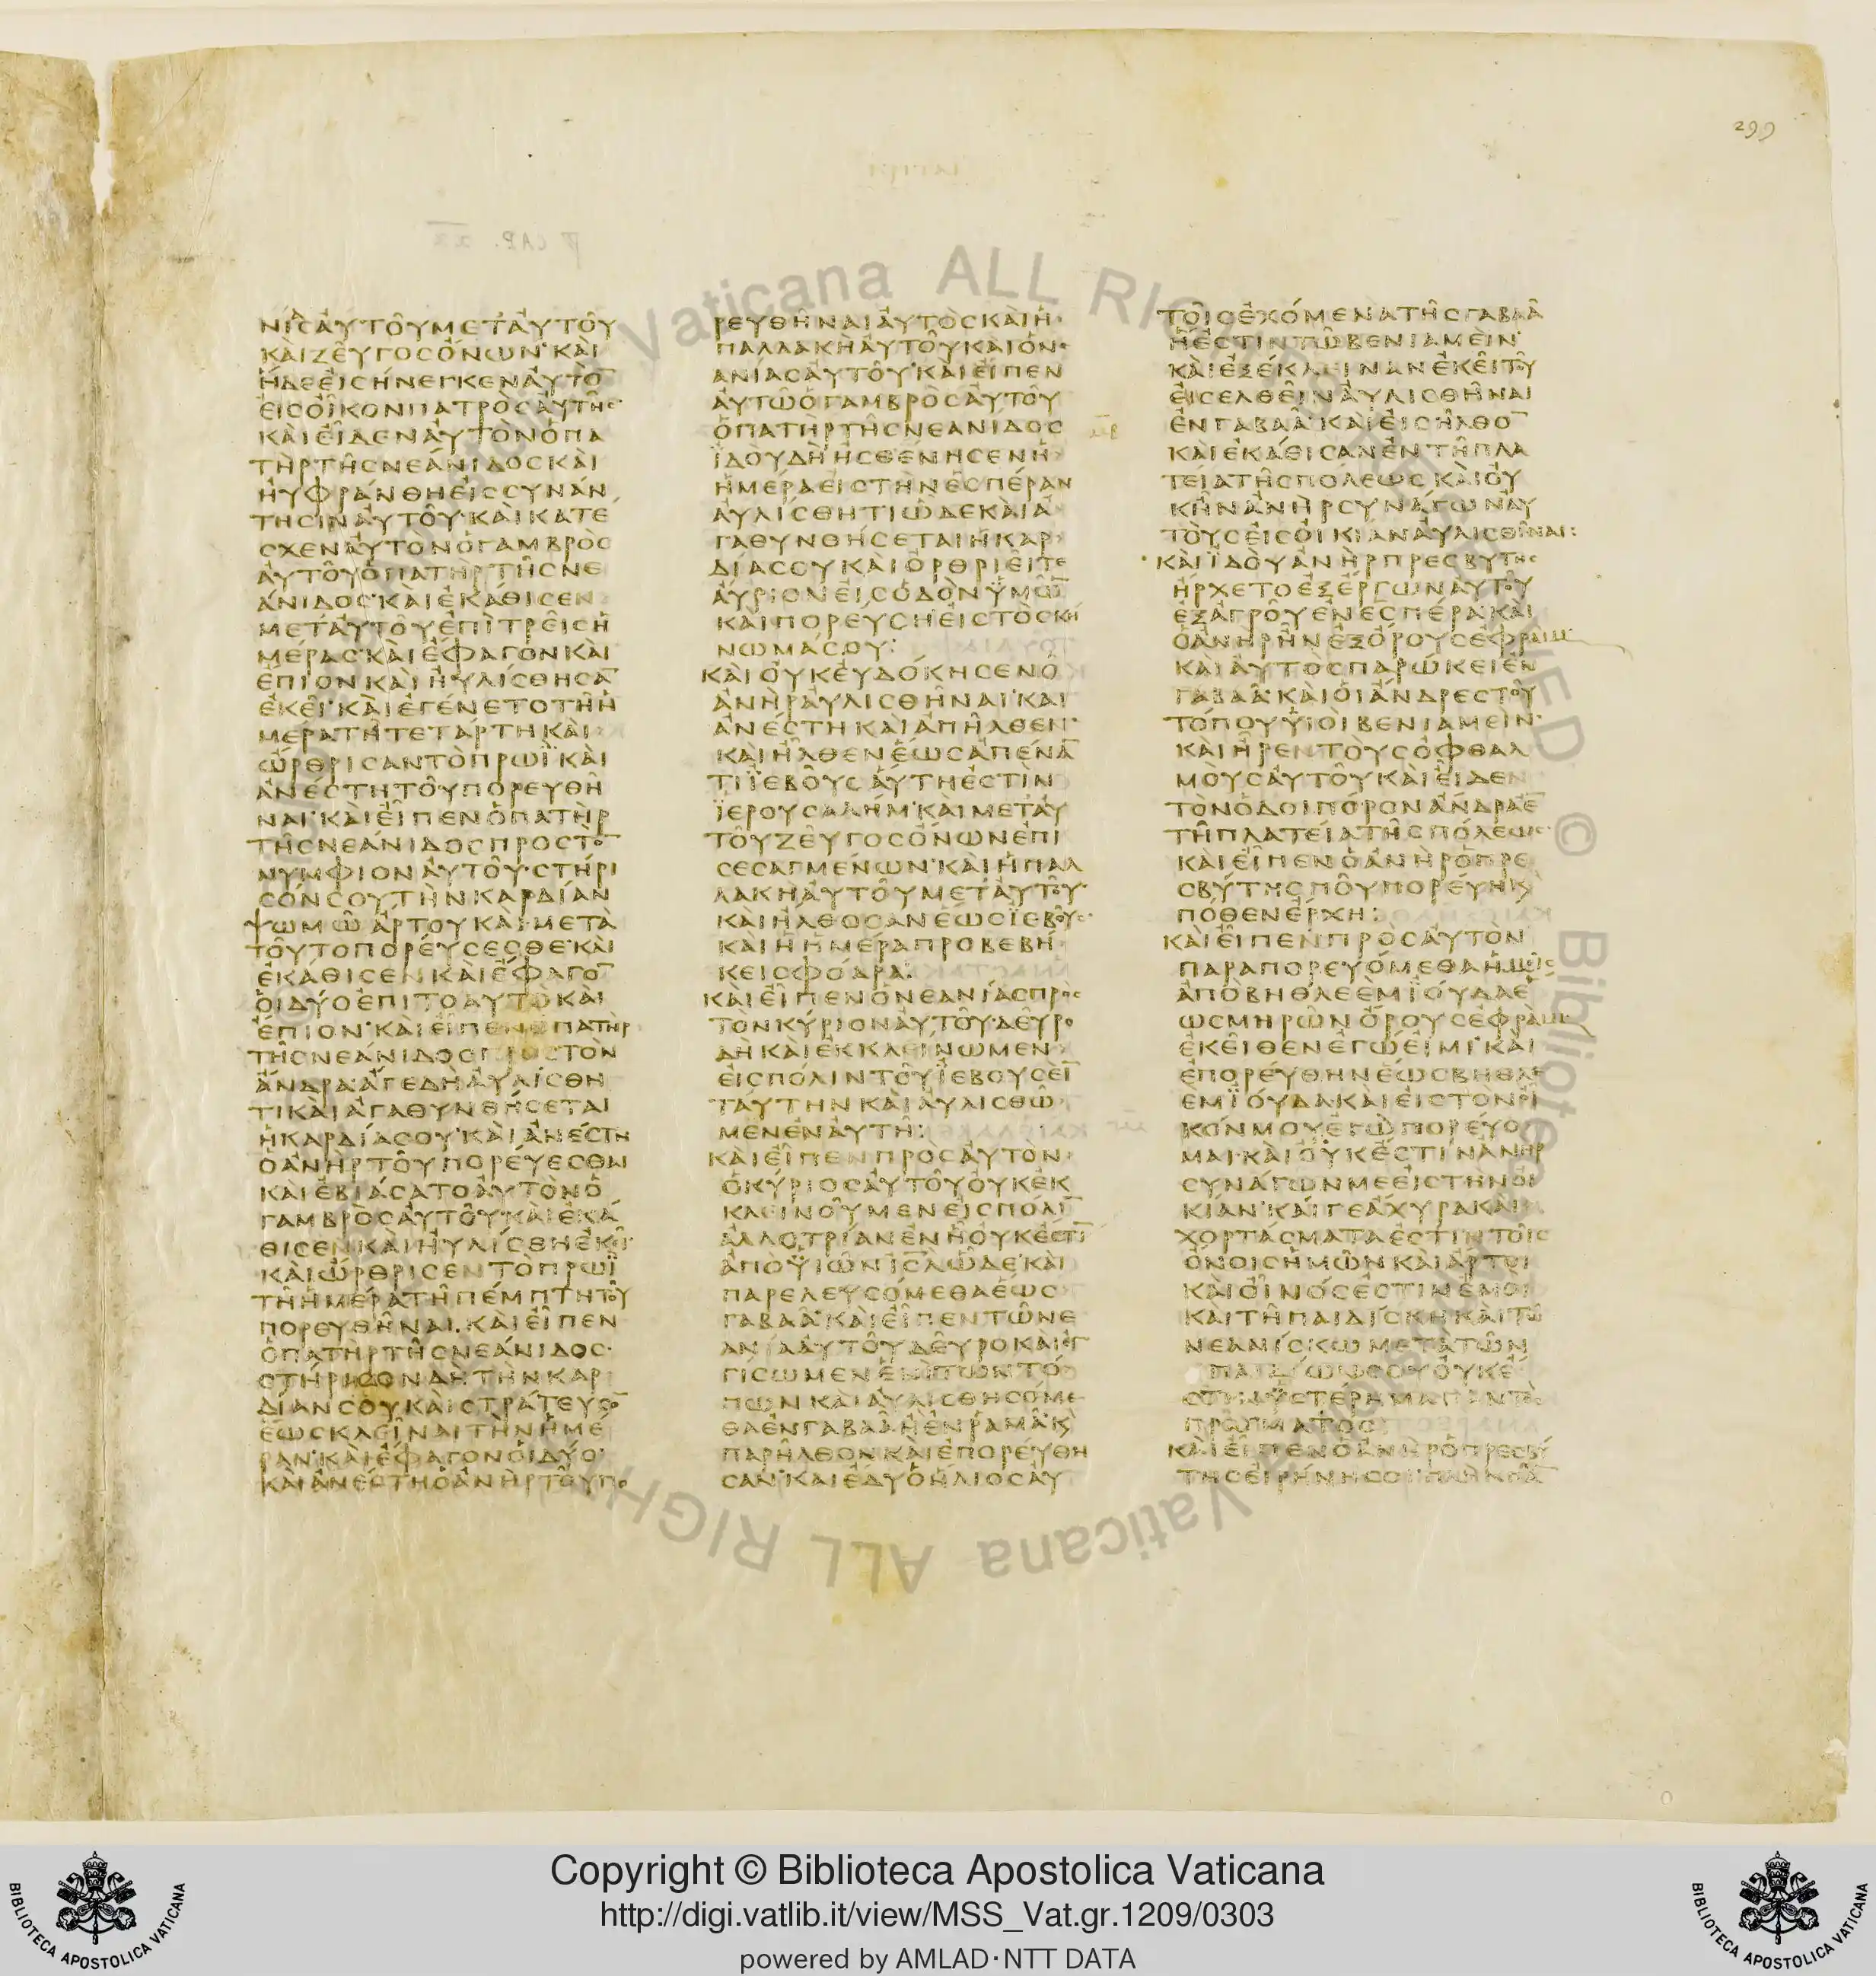 299
ΝΙΑϹΑΥΤΟΥΜΕΤΑΥΤΟΥ
ΚΑΙΖΕΥΓΟϹΟΝΩΝ·ΚΑΙ
ΗΔΕΕΙϹΗΝΕΓΚΕΝΑΥΤΟ̅
ΕΙϹΟΙΚΟΝΠΑΤΡΟϹΑΥΤΗϹ
ΚΑΙΕΙΔΕΝΑΥΤΟΝΟΠΑ
ΤΗΡΤΗϹΝΕΑΝΙΔΟϹΚΑΙ
ΗΥΦΡΑΝΘΗΕΙϹϹΥΝΑΝ
ΤΗϹΙΝΑΥΤΟΥ·ΚΑΙΚΑΤΕ
ϹΧΕΝΑΥΤΟΝΟΓΑΜΒΡΟϹ
ΑΥΤΟΥΟΠΑΤΗΡΤΗϹΝΕ
ΑΝΙΔΟϹ·ΚΑΙΕΚΑΘΙϹΕΝ
ΜΕΤΑΥΤΟΥΕΠΙΤΡΕΙϹΗ
ΜΕΡΑϹ·ΚΑΙΕΦΑΓΟΝΚΑΙ
ΕΠΙΟΝΚΑΙΗΥΛΙϹΘΗϹΑ̅
ΕΚΕΙ·ΚΑΙΕΓΕΝΕΤΟΤΗΗ
ΜΕΡΑΤΗΤΕΤΑΡΤΗΚΑΙ
ΩΡΘΡΙϹΑΝΤΟΠΡΩΪΚΑΙ
ΑΝΕϹΤΗΤΟΥΠΟΡΕΥΘΗ
ΝΑΙ·ΚΑΙΕΙΠΕΝΟΠΑΤΗΡ
ΤΗϹΝΕΑΝΙΔΟϹΠΡΟϹΤΟ̅
ΝΥΜΦΙΟΝΑΥΤΟΥ·ϹΤΗΡΙ
ϹΟΝϹΟΥΤΗΝΚΑΡΔΙΑΝ
ΨΩΜΩΑΡΤΟΥΚΑΙΜΕΤΑ
ΤΟΥΤΟΠΟΡΕΥϹΕϹΘΕ·ΚΑΙ
ΕΚΑΘΙϹΕΝΚΑΙΕΦΑΓΟ̅
ΟΙΔΥΟΕΠΙΤΟΑΥΤΟΚΑΙ
ΕΠΙΟΝ·ΚΑΙΕΙΠΕΝΟΠΑΤΗΡ
ΤΗϹΝΕΑΝΙΔΟϹΠΡΟϹΤΟΝ
ΑΝΔΡΑ·ΑΓΕΔΗΑΥΛΙϹΘΗ
ΤΙΚΑΙΑΓΑΘΥΝΘΗϹΕΤΑΙ
ΗΚΑΡΔΙΑϹΟΥ·ΚΑΙΑΝΕϹΤΗ
ΟΑΝΗΡΤΟΥΠΟΡΕΥΕϹΘΑΙ
ΚΑΙΕΒΙΑϹΑΤΟΑΥΤΟΝΟ
ΓΑΜΒΡΟϹΑΥΤΟΥ·ΚΑΙΕΚΑ
ΘΙϹΕΝΚΑΙΗΥΛΙϹΘΗΕΚΕΙ·
ΚΑΙΩΡΘΡΙϹΕΝΤΟΠΡΩΪ
ΤΗΗΜΕΡΑΤΗΠΕΜΠΤΗΤΟΥ
ΠΟΡΕΥΘΗΝΑΙ·ΚΑΙΕΙΠΕΝ
ΟΠΑΤΗΡΤΗϹΝΕΑΝΙΔΟϹ·
ϹΤΗΡΙϹΟΝΔΗΤΗΝΚΑΡ
ΔΙΑΝϹΟΥΚΑΙϹΤΡΑΤΕΥϹΟ̅
ΕΩϹΚΛΕΙΝΑΙΤΗΝΗΜΕ
ΡΑΝ·ΚΑΙΕΦΑΓΟΝΟΙΔΥΟ·
ΚΑΙΑΝΕϹΤΗΟΑΝΗΡΤΟΥΠΟ
ΡΕΥΘΗΝΑΙΑΥΤΟϹΚΑΙΗ
ΠΑΛΛΑΚΗΑΥΤΟΥΚΑΙΟΝΕ
ΑΝΙΑϹΑΥΤΟΥ·ΚΑΙΕΙΠΕΝ
ΑΥΤΩΟΓΑΜΒΡΟϹΑΥΤΟΥ
ΟΠΑΤΗΡΤΗϹΝΕΑΝΙΔΟϹ
ΪΔΟΥΔΗΗϹΘΕΝΗϹΕΝΗ
ΗΜΕΡΑΕΙϹΤΗΝΕϹΠΕΡΑΝ
ΑΥΛΙϹΘΗΤΙΩΔΕΚΑΙΑ
ΓΑΘΥΝΘΗϹΕΤΑΙΗΚΑΡ
ΔΙΑϹΟΥΚΑΙΟΡΘΡΙΕΙΤΕ
ΑΥΡΙΟΝΕΙϹΟΔΟΝΫΜΩ̅
ΚΑΙΠΟΡΕΥϹΗΕΙϹΤΟϹΚΗ
ΝΩΜΑϹΟΥ:
ΚΑΙΟΥΚΕΥΔΟΚΗϹΕΝΟ
ΑΝΗΡΑΥΛΙϹΘΗΝΑΙ·ΚΑΙ
ΑΝΕϹΤΗΚΑΙΑΠΗΛΘΕΝ·
ΚΑΙΗΛΘΕΝΕΩϹΑΠΕΝΑ̅
ΤΙΪΕΒΟΥϹΑΥΤΗΕϹΤΙΝ
ΪΕΡΟΥϹΑΛΗΜ·ΚΑΙΜΕΤΑΥ
ΤΟΥΖΕΥΓΟϹΟΝΩΝΕΠΙ
ϹΕϹΑΓΜΕΝΩΝ·ΚΑΙΗΠΑΛ
ΛΑΚΗΑΥΤΟΥΜΕΤΑΥΤΟΥ·
ΚΑΙΗΛΘΟϹΑΝΕΩϹΪΕΒΟΥϹ·
ΚΑΙΗΗΜΕΡΑΠΡΟΒΕΒΗ
ΚΕΙϹΦΟΔΡΑ:
ΚΑΙΕΙΠΕΝΟΝΕΑΝΙΑϹΠΡΟϹ
ΤΟΝΚΥΡΙΟΝΑΥΤΟΥ·ΔΕΥΡΟ
ΔΗΚΑΙΕΚΚΛΕΙΝΩΜΕΝ
ΕΙϹΠΟΛΙΝΤΟΥΪΕΒΟΥϹΕΙ̅
ΤΑΥΤΗΝΚΑΙΑΥΛΙϹΘΩ
ΜΕΝΕΝΑΥΤΗ:
ΚΑΙΕΙΠΕΝΠΡΟϹΑΥΤΟΝ
ΟΚΥΡΙΟϹΑΥΤΟΥΟΥΚΕΚ
ΚΛΕΙΝΟΥΜΕΝΕΙϹΠΟΛΙ̅
ΑΛΛΟΤΡΙΑΝΕΝΗΟΥΚΕϹΤΙ̅
ΑΠΟΫΙΩΝΙ̅Ϲ̅Λ̅ΩΔΕ·ΚΑΙ
ΠΑΡΕΛΕΥϹΟΜΕΘΑΕΩϹ
ΓΑΒΑΑ·ΚΑΙΕΙΠΕΝΤΩΝΕ
ΑΝΙΑΑΥΤΟΥΔΕΥΡΟΚΑΙΕΓ
ΓΙϹΩΜΕΝΕΝΙΤΩΝΤΟ
ΠΩΝΚΑΙΑΥΛΙϹΘΗϹΟΜΕ
ΘΑΕΝΓΑΒΑΑΗΕΝΡΑΜΑ·Κ
ΠΑΡΗΛΘΟΝΚΑΙΕΠΟΡΕΥΘΗ
ϹΑΝ·ΚΑΙΕΔΥΟΗΛΙΟϹΑΥ
ΤΟΙϹΕΧΟΜΕΝΑΤΗϹΓΑΒΑΑ
ΗΕϹΤΙΝΤΩΒΕΝΙΑΜΕΙΝ·
ΚΑΙΕΞΕΚΛΕΙΝΑΝΕΚΕΙΤΟΥ
ΕΙϹΕΛΘΕΙΝΑΥΛΙϹΘΗΝΑΙ
ΕΝΓΑΒΑΑ·ΚΑΙΕΙϹΗΛΘΟ̅
ΚΑΙΕΚΑΘΙϹΑΝΕΝΤΗΠΛΑ
ΤΕΙΑΤΗϹΠΟΛΕΩϹΚΑΙΟΥ
ΚΗΝΑΝΗΡϹΥΝΑΓΩΝΑΥ
ΤΟΥϹΕΙϹΟΙΚΙΑΝΑΥΛΙϹΘΗΝΑΙ:
ΚΑΙΪΔΟΥΑΝΗΡΠΡΕϹΒΥΤΗϹ
ΗΡΧΕΤΟΕΞΕΡΓΩΝΑΥΤΟΥ
ΕΞΑΓΡΟΥΕΝΕϹΠΕΡΑ·ΚΑΙ
ΟΑΝΗΡΗΝΕΞΟΡΟΥϹΕΦΡΑΙΜ
ΚΑΙΑΥΤΟϹΠΑΡΩΚΕΙΕΝ
ΓΑΒΑΑ·ΚΑΙΟΙΑΝΔΡΕϹΤΟΥ
ΤΟΠΟΥΫΙΟΙΒΕΝΙΑΜΕΙΝ·
ΚΑΙΗΡΕΝΤΟΥϹΟΦΘΑΛ
ΜΟΥϹΑΥΤΟΥΚΑΙΕΙΔΕΝ
ΤΟΝΟΔΟΙΠΟΡΟΝΑΝΔΡΑΕ̅
ΤΗΠΛΑΤΕΙΑΤΗϹΠΟΛΕΩϹ·
ΚΑΙΕΙΠΕΝΟΑΝΗΡΟΠΡΕ
ϹΒΥΤΗϹΠΟΥΠΟΡΕΥΗΚ
ΠΟΘΕΝΕΡΧΗ:
ΚΑΙΕΙΠΕΝΠΡΟϹΑΥΤΟΝ
ΠΑΡΑΠΟΡΕΥΟΜΕΘΑΗΜΕΙϹ
ΑΠΟΒΗΘΛΕΕΜΪΟΥΔΑΕ
ΩϹΜΗΡΩΝΟΡΟΥϹΕΦΡΑΙΜ
ΕΚΕΙΘΕΝΕΓΩΕΙΜΙ·ΚΑΙ
ΕΠΟΡΕΥΘΗΝΕΩϹΒΗΘΛΕ
ΕΜΪΟΥΔΑ·ΚΑΙΕΙϹΤΟΝΟΙ
ΚΟΝΜΟΥΕΓΩΠΟΡΕΥΟ
ΜΑΙ·ΚΑΙΟΥΚΕϹΤΙΝΑΝΗΡ
ϹΥΝΑΓΩΝΜΕΕΙϹΤΗΝΟΙ
ΚΙΑΝ·ΚΑΙΓΕΑΧΥΡΑΚΑΙ
ΧΟΡΤΑϹΜΑΤΑΕϹΤΙΝΤΟΙϹ
ΟΝΟΙϹΗΜΩΝΚΑΙΑΡΤΟΙ
ΚΑΙΟΙΝΟϹΕϹΤΙΝΕΜΟΙ
ΚΑΙΤΗΠΑΙΔΙϹΚΗΚΑΙΤΩ
ΝΕΑΝΙϹΚΩΜΕΤΑΤΩΝ
ΠΑΙΔΙΩΝϹΟΥΟΥΚΕ
ϹΤΙΝΫϹΤΕΡΗΜΑΠΑΝΤΟϹ
ΠΡΑΓΜΑΤΟϹ
ΚΑΙΕΙΠΕΝΟΑΝΗΡΟΠΡΕϹΒΥ
ΤΗϹΕΙΡΗΝΗϹΟΙ·ΠΛΗΝΠΑ̅
Copyright © Biblioteca Apostolica Vaticana
http://digi.vatlib.it/view/MSS_Vat.gr.1209/0303
powered by AMLAD·NTT DATA
BIBLIOTECA APOSTOLICA VATICANA
BIBLIOTECA APOSTOLICA VATICANA